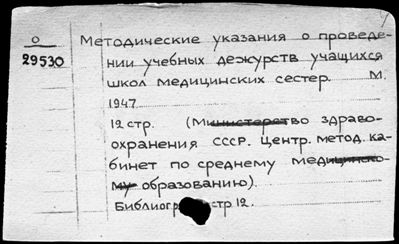 О
29530
Методические указания о проведе-
нии учебных дежурств учащихся
школ медицинских сестер. М.
1947
12 стр. (Министерство здраво-
охранения СССР. Центр. метод. ка-
бинет по среднему медицинско-
му образованию).
Библиогр стр 12.